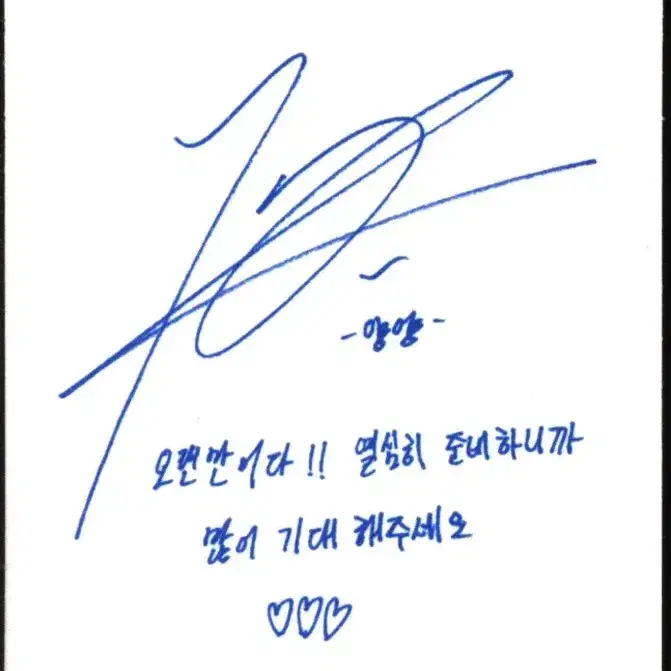 -양양-
오랜만이다!! 열심히 준비하니까
많이 기대 해주세요
♡♡♡